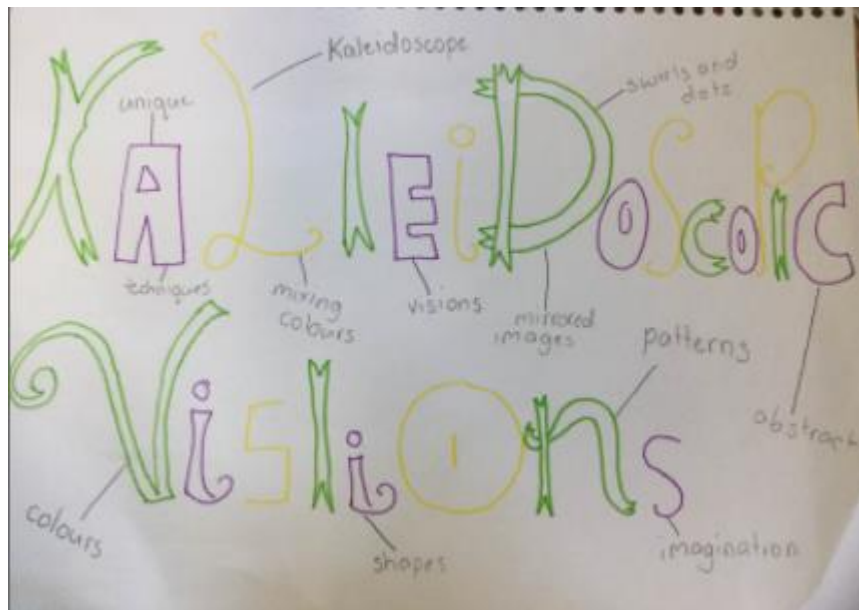 Kaleidoscope
swirls and
dots
unique
KALIEiDOScOPIC
techniques
mixing
colours
visions
mirrored
images
patterns
abstract
VisIiOns
colours
shapes
imagination